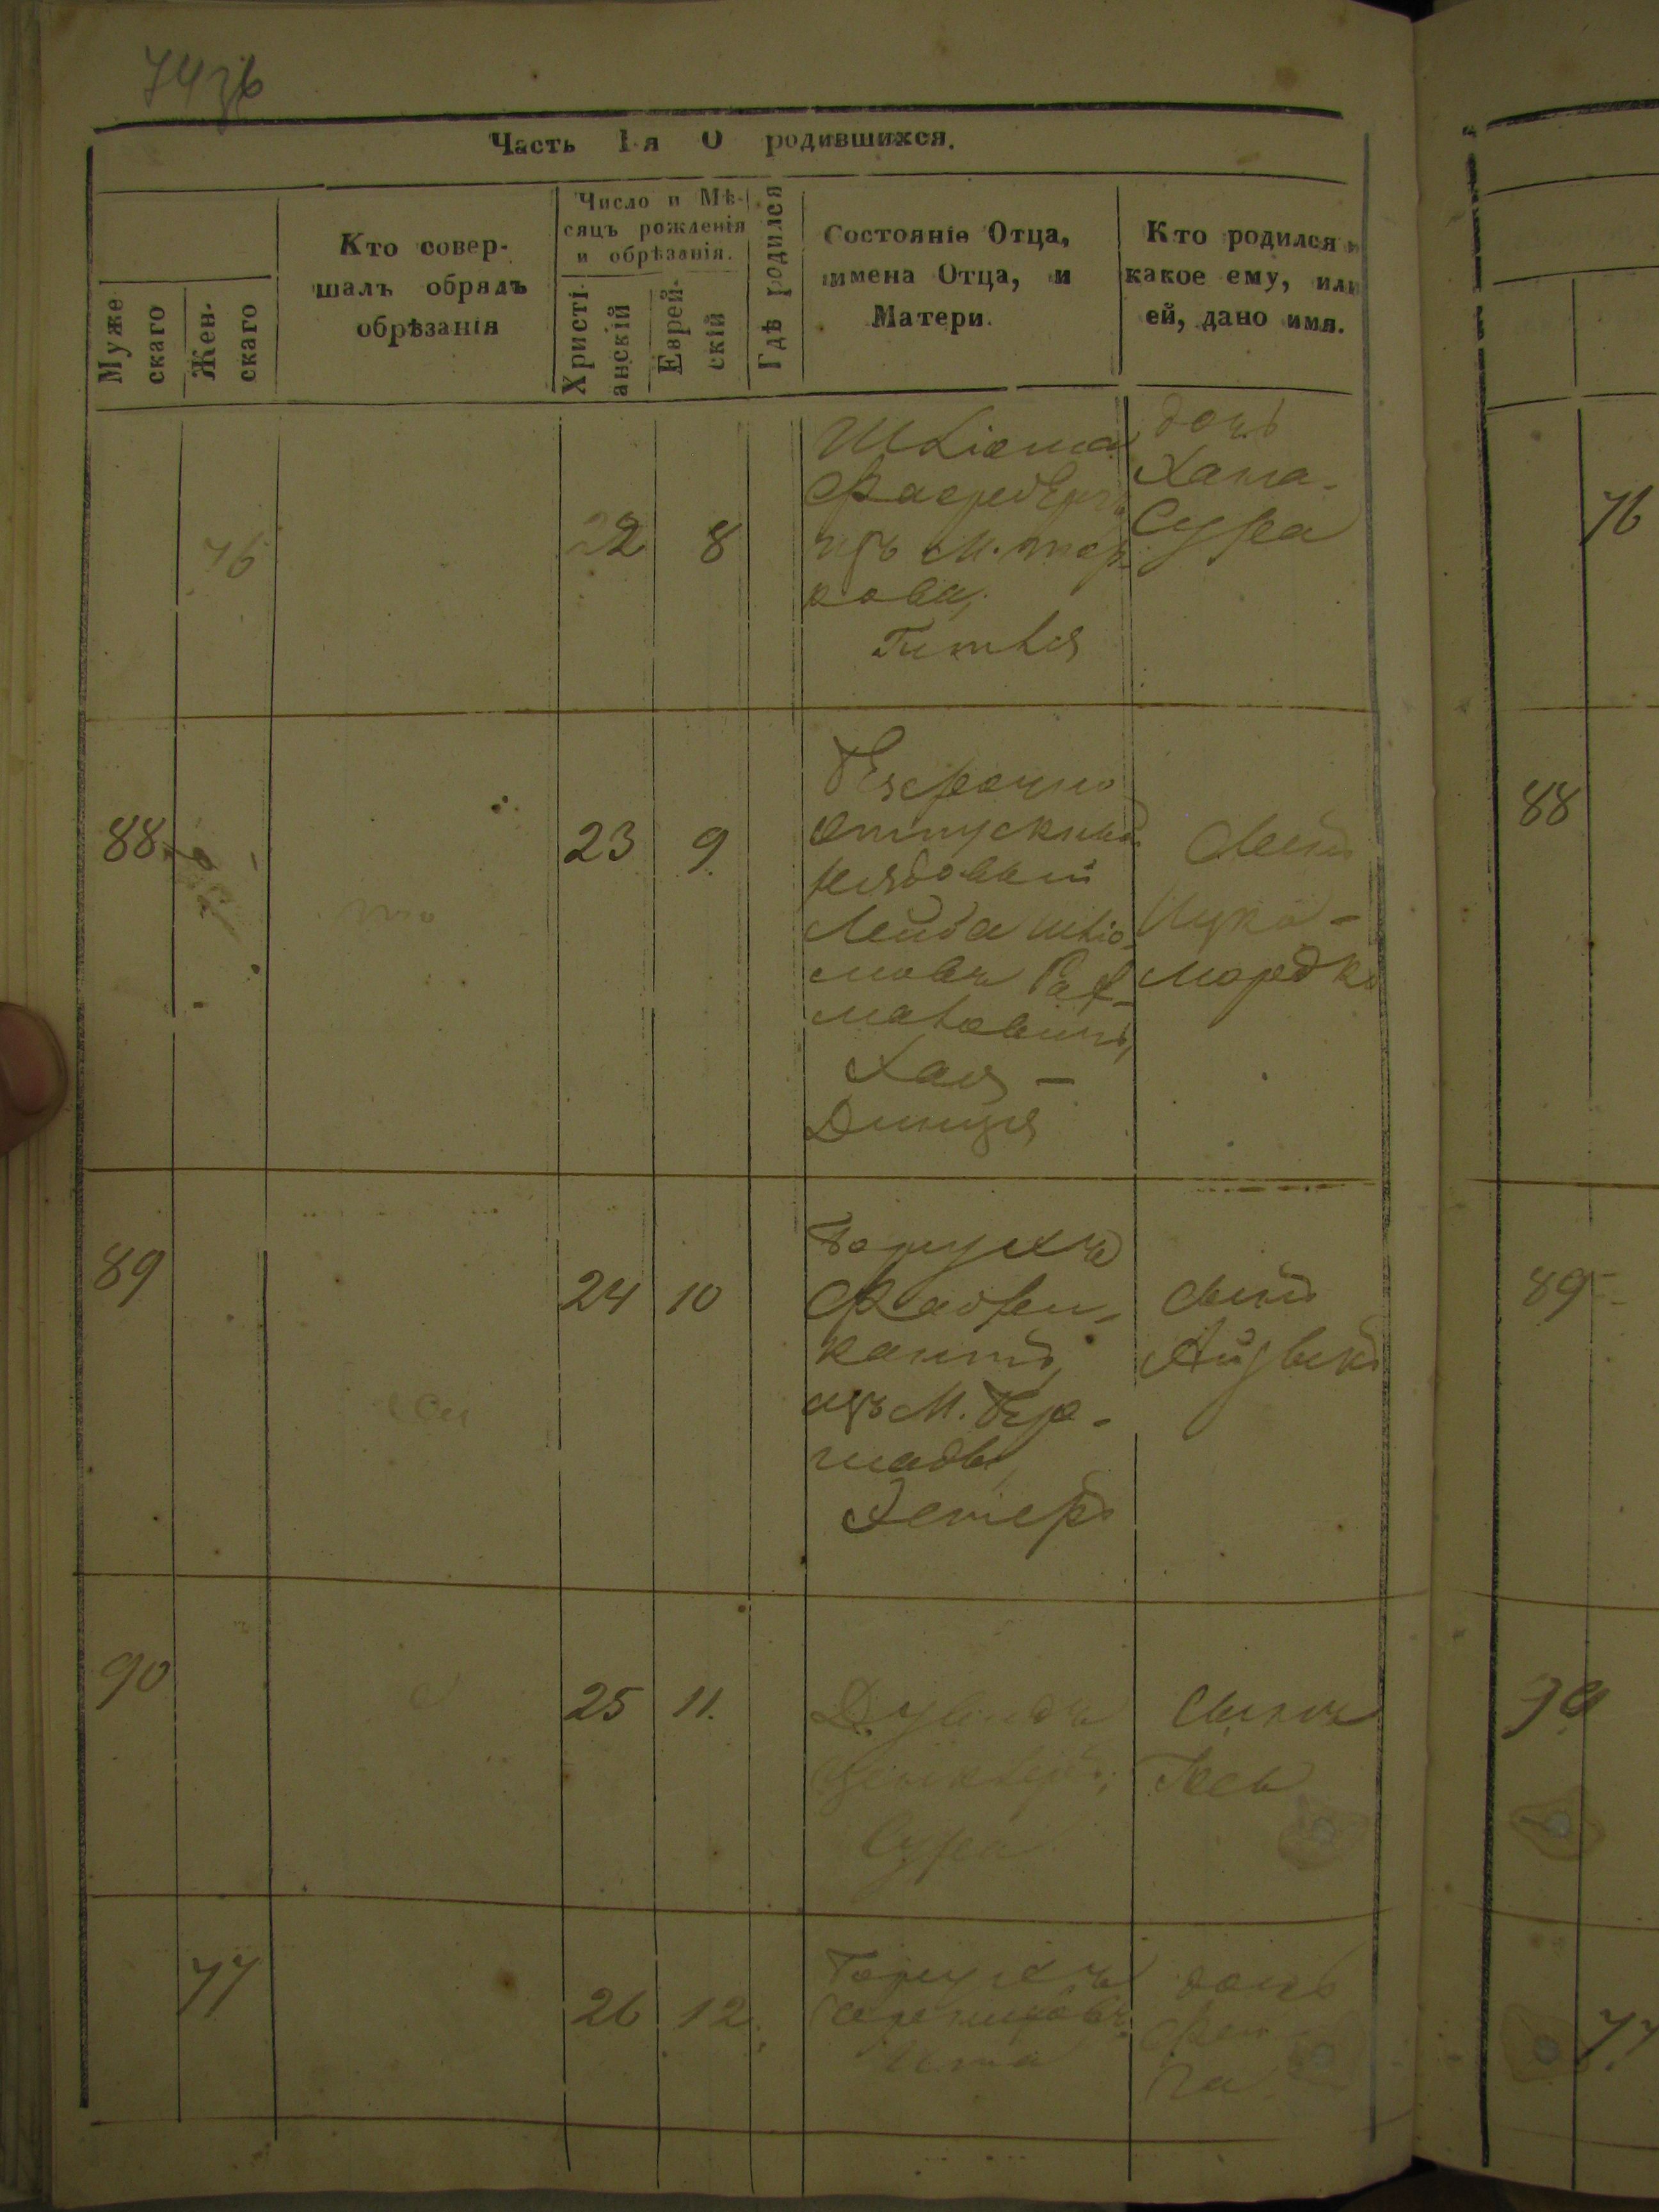 74зб
Часть 1-я О родившихся.
Муже
скаго
Жен-
скаго
Кто совер-
шалъ обрядъ
обрѣзанія
Число и Мѣ-
сяцъ рожденія
и обрѣзанія.
Христі
анскій
Еврей-
скій
Гдѣ родился
Состояніе Отца,
имена Отца, и
Матери.
Кто родился и
какое ему, или
ей, дано имя.
76
22
8
Шліома
изъ М. Тер
кова,
Гитля
дочь
Хана-
Сура
88
23
9
Безсрочно
отпускный
рядовый
Лейба Шліо
мовъ Рах-
маловичъ,
Хая -
Динця
Сынъ
Ицко -
Мордко
89
24
10
Борухъ
Фабри-
кантъ,
изъ М. Бер-
шади
Хетеръ
Сынъ
Айзыкъ
90
25
11.
Дувидъ
Сура
Сынъ
77
26
12.
Борухъ
дочь
76
88
89
90
77